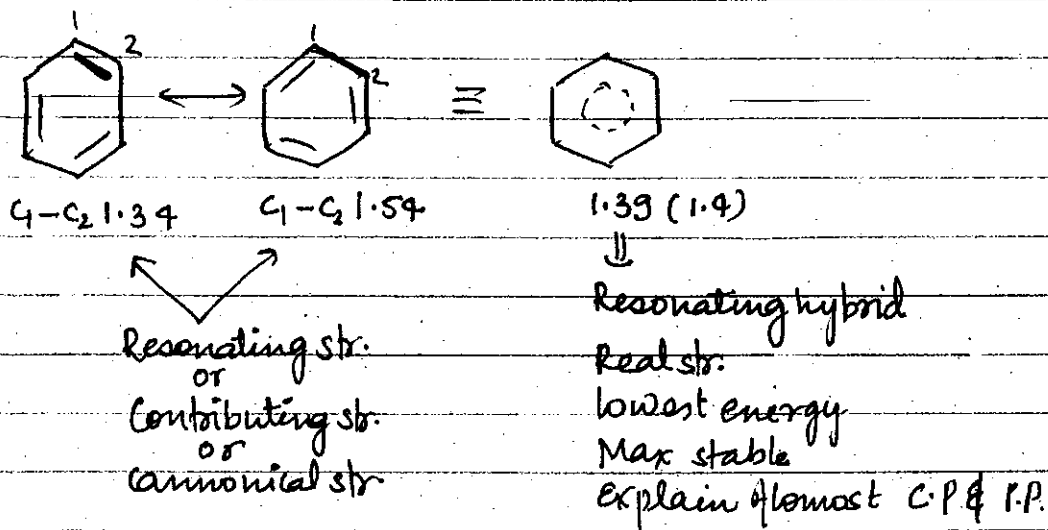 1
2
1
2
≡
C1-C2 1.34
C1-C2 1.54
1.39 (1.4)
Resonating str.
or
Contributing str.
or
Cannonical str
Resonating hybrid
Real str.
lowest energy
Max stable
Explain Alomost C.P & P.P.